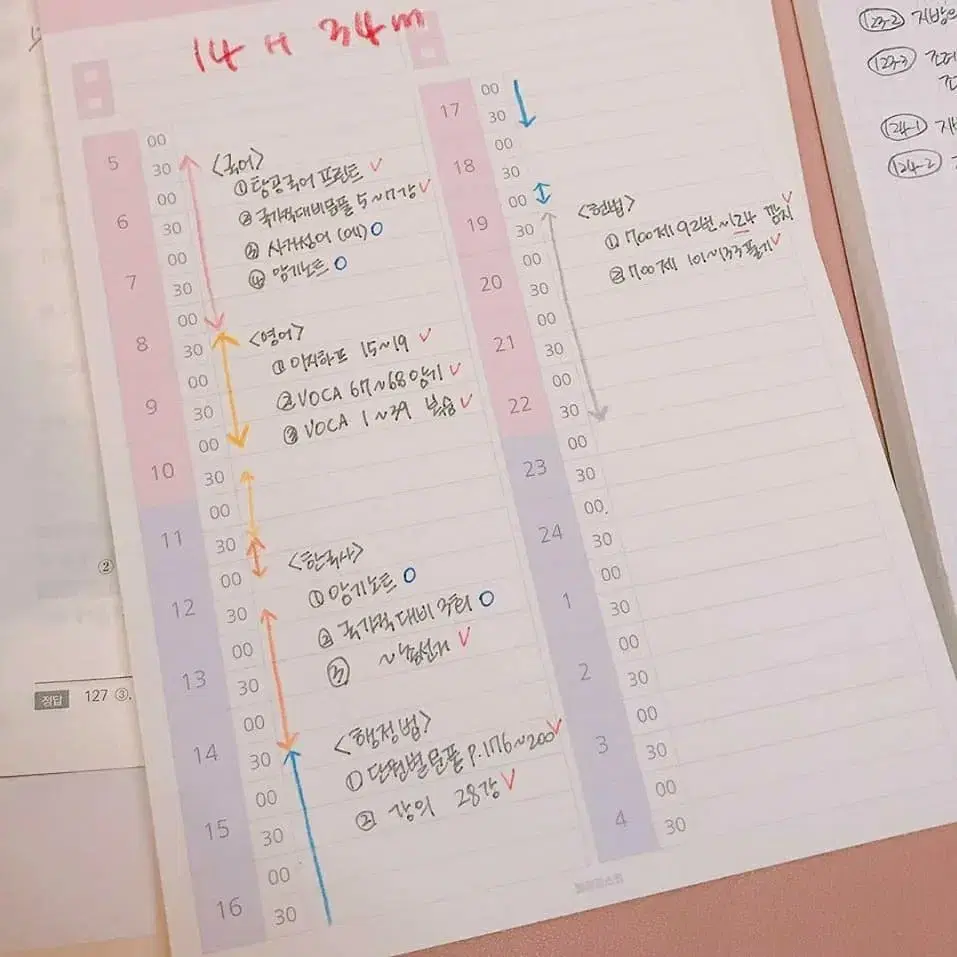 14 H 34m
5
00
30
<국어>
① 탐공국어 프린트 ✓
6
00
② 국가직대비문풀 5~17강 ✓
30
③ 사자성어 (예) O
7
00
④ 암기노트 O
30
8
00
<영어>
30
① 이지하프 15~19 ✓
9
00
② VOCA 67~68 암기 ✓
30
③ VOCA 1~39 복습 ✓
10
00
30
11
00
30
<한국사>
12
00
① 암기노트 O
30
② 국가직대비 O
13
00
③ ✓
30
14
00
<행정법>
30
① 단원별문풀 P.176~200 ✓
15
00
② 강의 28강 ✓
30
16
00
30
17
00
30
18
00
30
19
00
<헌법>
30
① 700제 92번~124 ✓
20
00
② 700제 101~133풀기 ✓
30
21
00
30
22
00
30
23
00
30
24
00
30
1
00
30
2
00
30
3
00
30
4
00
30
②
정답 127 ③,
123-2
123-3
124-1
124-2